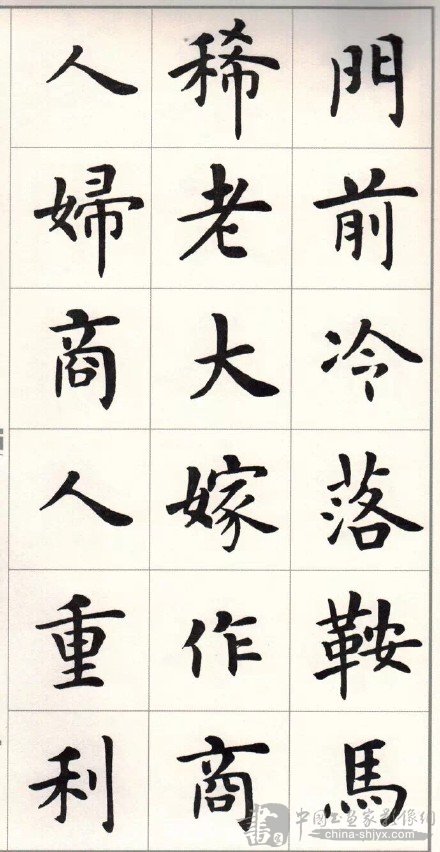 門前冷落鞍馬
稀老大嫁作商
人婦商人重利
中国书画家影像网
china-shjyx.com